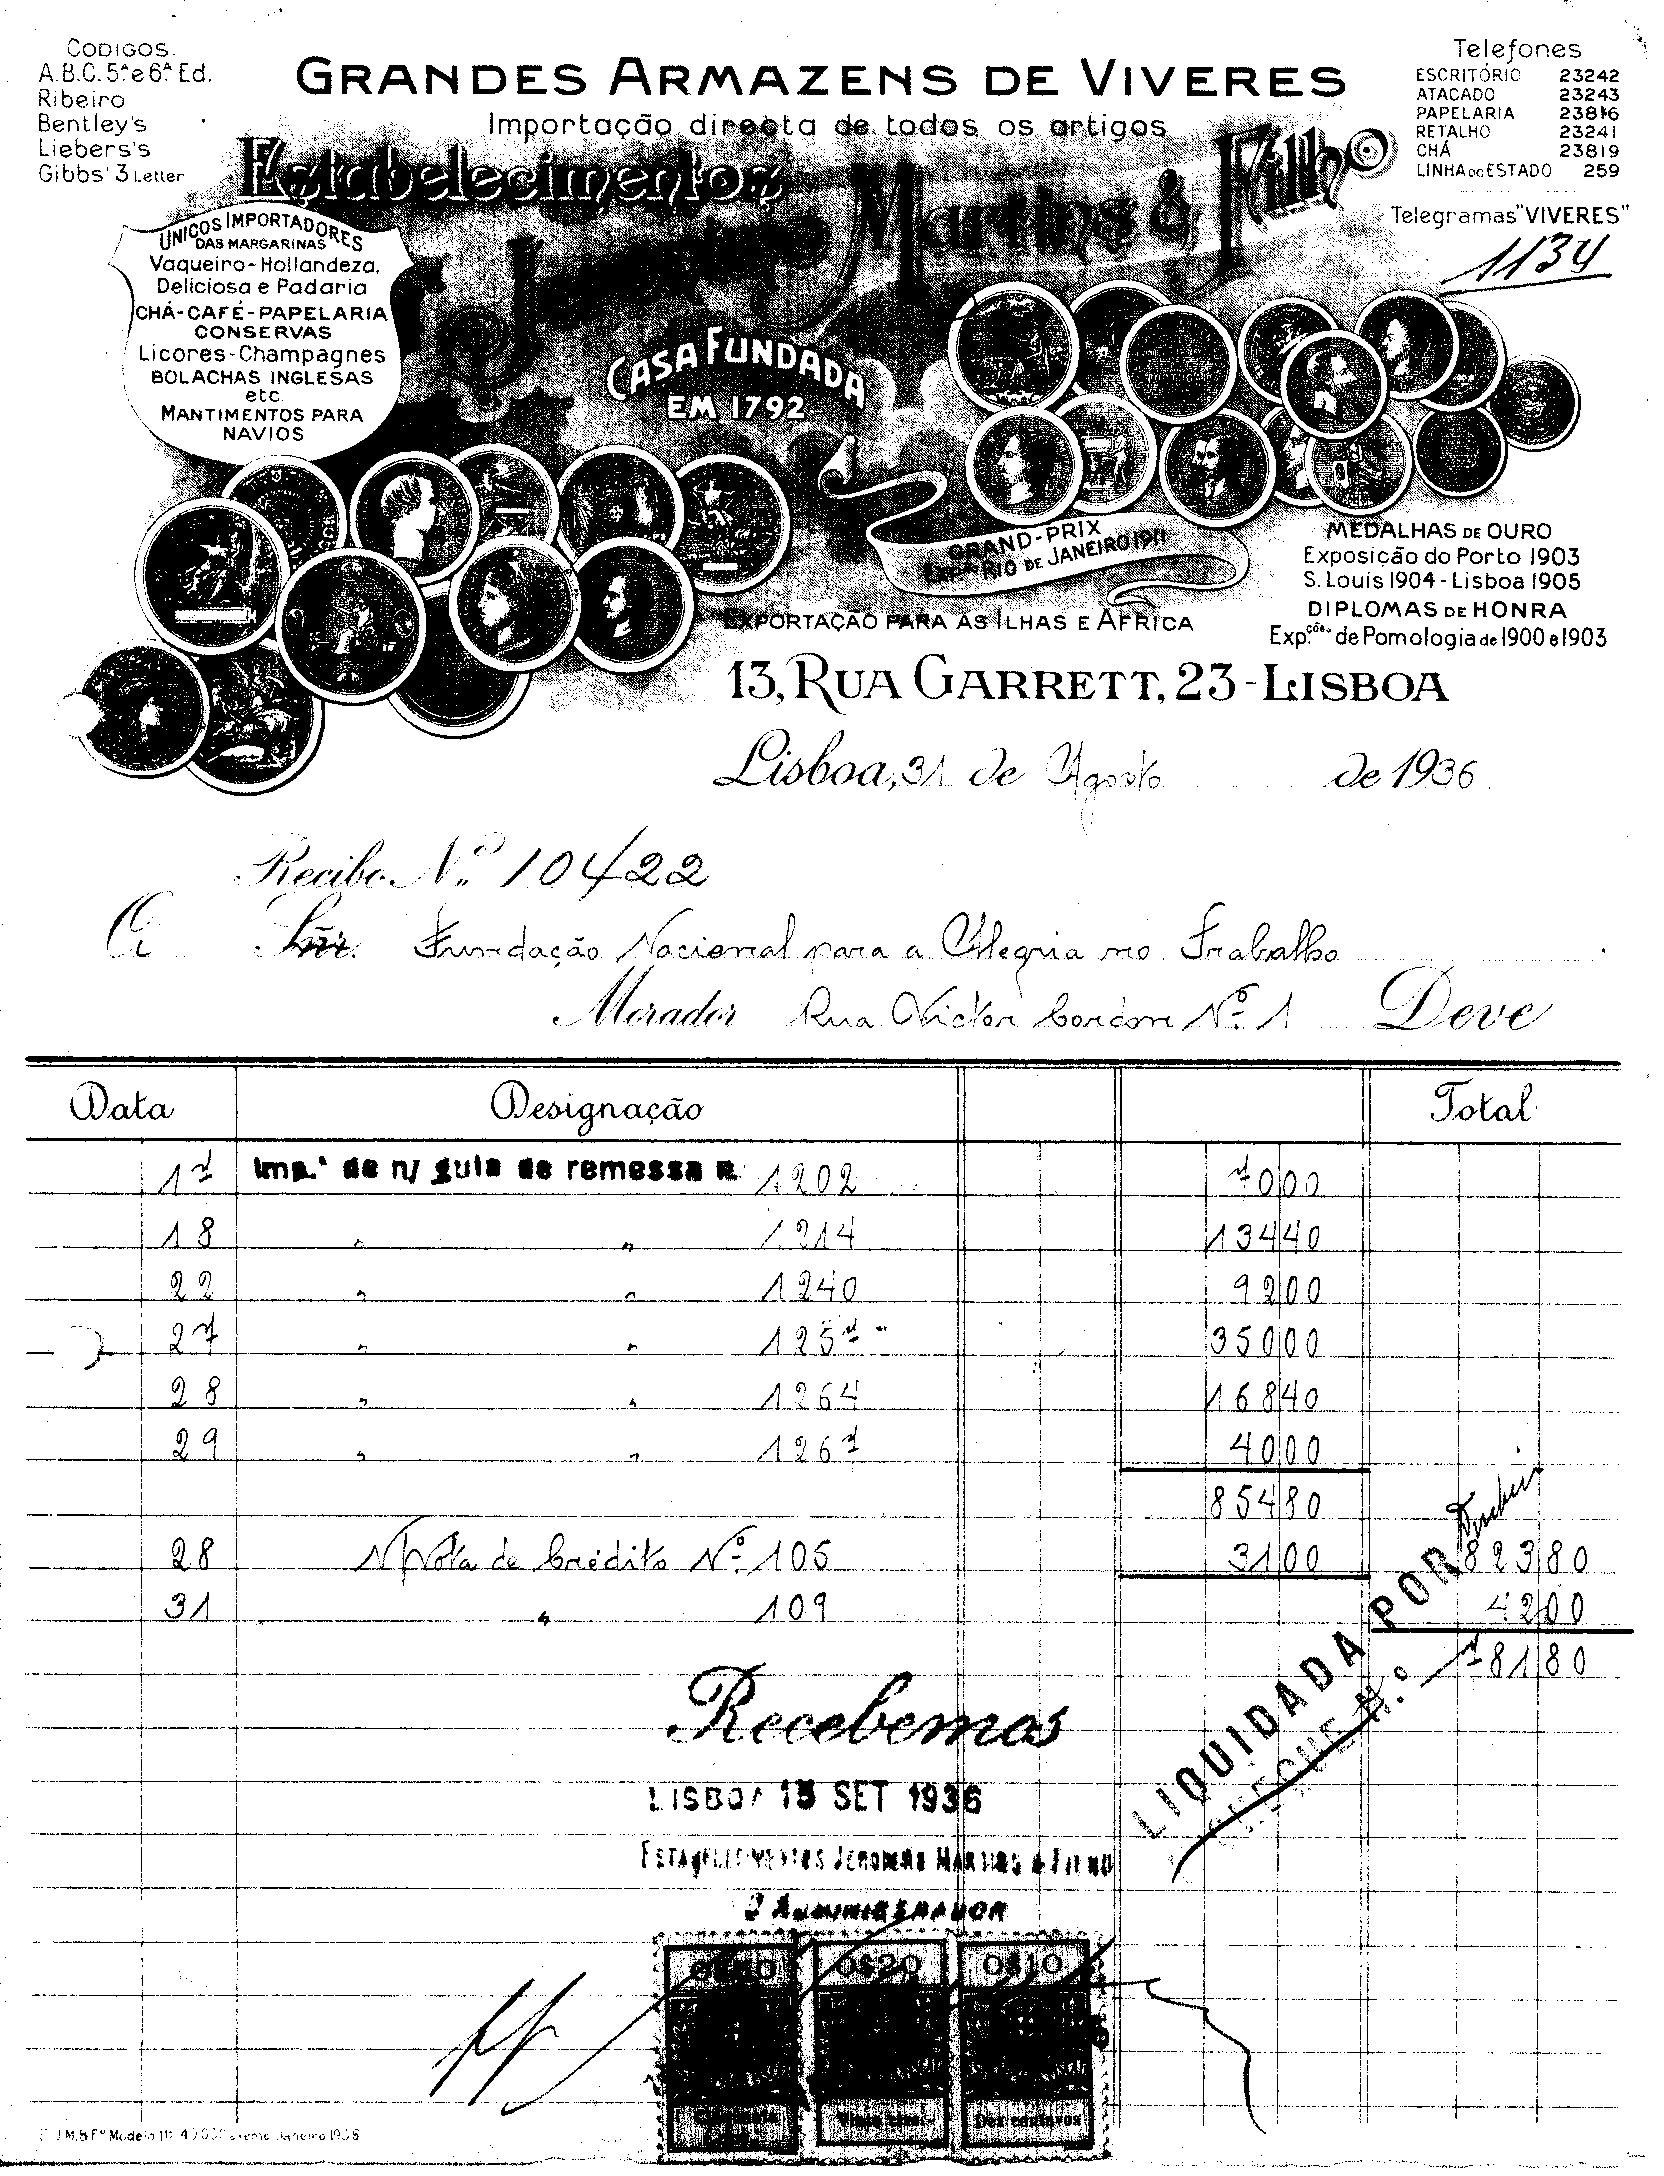 CODIGOS.
A.B.C. 5ª e 6ª Ed.
Ribeiro
Bentley's
Liebers's
Gibbs' 3 Letter
GRANDES ARMAZENS DE VIVERES
Importação directa de todos os artigos
Telefones
ESCRITÓRIO 23242
ATACADO 23243
PAPELARIA 23816
RETALHO 23241
CHÁ 23819
LINHA DO ESTADO 259
Telegramas "VIVERES"
1134
Estabelecimentos
Jeronimo Martins & Filho
UNICOS IMPORTADORES
DAS MARGARINAS
Vaqueiro-Hollandeza,
Deliciosa e Padaria
CHÁ-CAFÉ-PAPELARIA
CONSERVAS
Licores-Champagnes
BOLACHAS INGLESAS
etc.
MANTIMENTOS PARA
NAVIOS
CASA FUNDADA
EM 1792
GRAND-PRIX
RIO DE JANEIRO 1911
EXPORTAÇÃO PARA AS ILHAS E AFRICA
MEDALHAS DE OURO
Exposição do Porto 1903
S. Louis 1904 - Lisboa 1905
DIPLOMAS DE HONRA
Exp.ções de Pomologia de 1900 e 1903
13, RUA GARRETT, 23 - LISBOA
Lisboa, 31 de Agosto de 1936
Recibo Nº 10422
A Snr. Fundação Nacional para a Alegria no Trabalho
Morador Rua Victor Cordon Nº 1 Deve
Data Designação Total
17 Imp.ª de n/ guia de remessa n. 1202 70 00
18 " " 1214 134 40
22 " " 1240 92 00
27 " " 1257 350 00
28 " " 1264 168 40
29 " " 1267 40 00
854 80
28 N/ Nota de Crédito Nº 105 31 00 823 80
31 " 109 42 00
781 80
LIQUIDADA POR
CHEQUE N.º
Recebemos
LISBOA 15 SET 1936
ESTABELECIMENTOS JERONIMO MARTINS & FILHO
O ADMINISTRADOR
0$20 0$10
Dez centavos